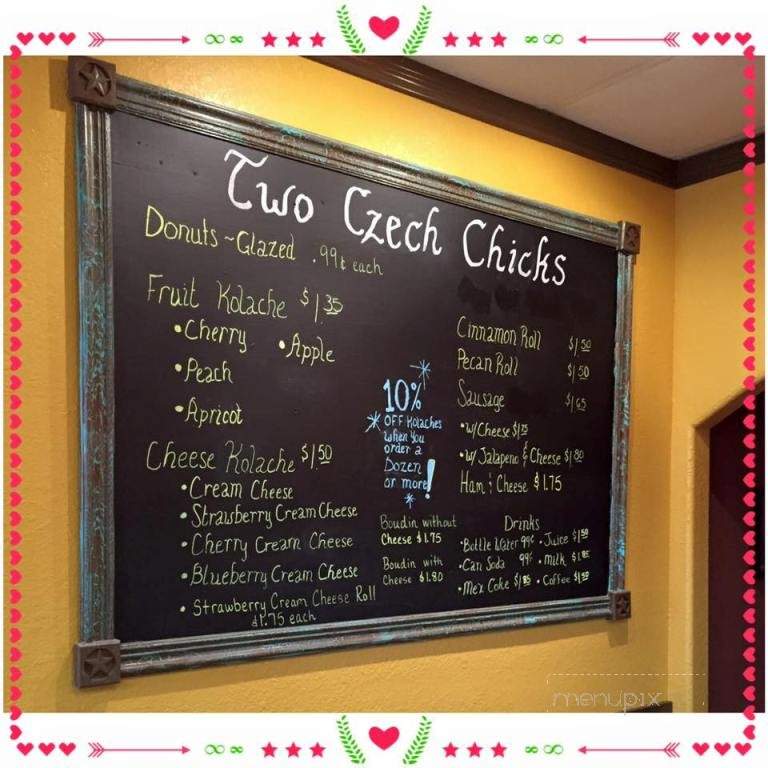 Two Czech Chicks
Donuts ~ Glazed .99¢ each
Fruit Kolache $1.35
•Cherry •Apple
•Peach
•Apricot
Cheese Kolache $1.50
•Cream Cheese
•Strawberry Cream Cheese
•Cherry Cream Cheese
•Blueberry Cream Cheese
•Strawberry Cream Cheese Roll
$1.75 each
10%
OFF Kolaches
when you
order a
Dozen
or more!
Boudin without
Cheese $1.75
Boudin with
Cheese $1.80
Cinnamon Roll $1.50
Pecan Roll $1.50
Sausage $1.65
•w/Cheese $1.75
•w/Jalapeno & Cheese $1.80
Ham & Cheese $1.75
Drinks
•Bottle Water 99¢ •Juice $1.50
•Can Soda 99¢ •Milk
•Mex Coke $1.85 •Coffee $1.50
menupix